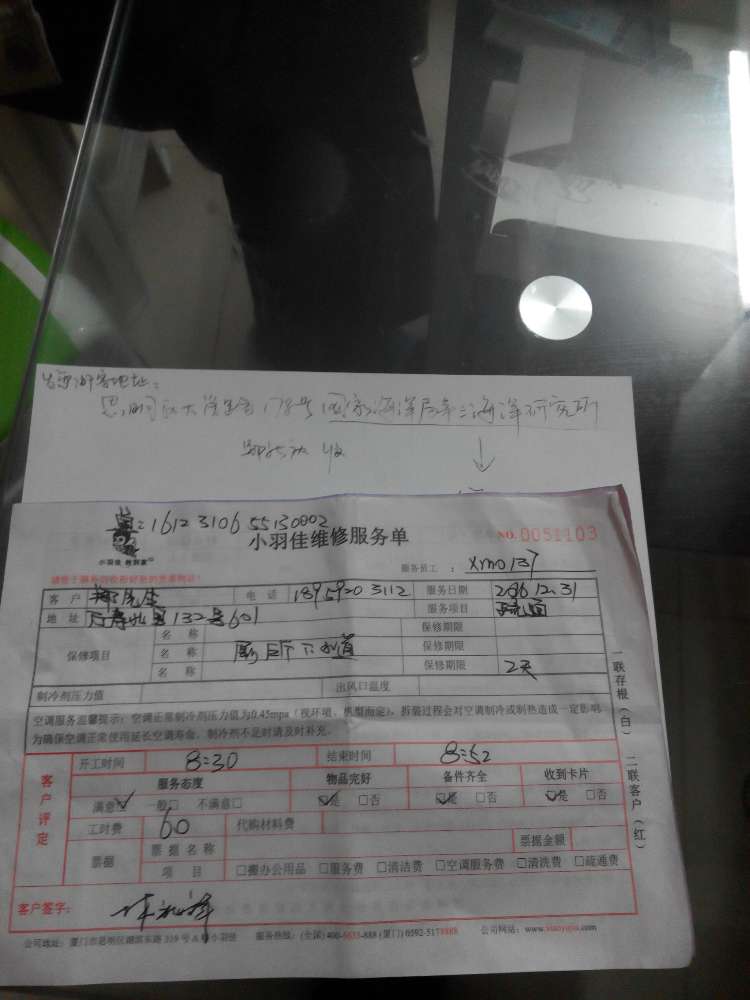 思明区大学路178号国家海洋局第三海洋研究所
收
单:1612310655130002
小羽佳维修服务单 NO.0051103
小羽佳 教到家
服务员工 : xm0137
客 户 先生 电 话 18959203112 服务日期 2016.12.31
地 址 132号601 服务项目 疏通
名 称 保修期限
保修项目 名 称 厕所下水道 保修期限
名 称 保修期限 2天
制冷剂压力值 出风口温度
空调服务温馨提示:空调正常制冷剂压力值为0.45mpa(视环境、机型而定),拆装过程会对空调制冷或制热造成一定影响
为确保空调正常使用延长空调寿命,制冷剂不足时请及时补充。
开工时间 8:30 结束时间 8:52
服务态度 物品完好 备件齐全 收到卡片
满意☑ 一般□ 不满意□ ☑是 □否 ☑是 □否 ☑是 □否
工时费 60 代购材料费
票据 票据名称 票据金额
项 目 □搬办公用品 □服务费 □清洁费 □空调服务费 □清洗费 □疏通费
客户评定
客户签字:
一联存根(白) 二联客户(红)
公司地址:厦门市思明区湖滨东路319号A幢小羽佳 服务热线:(全国)400-6633-888 (厦门)0592-5178888 公司网站:www.xiaoyujia.com